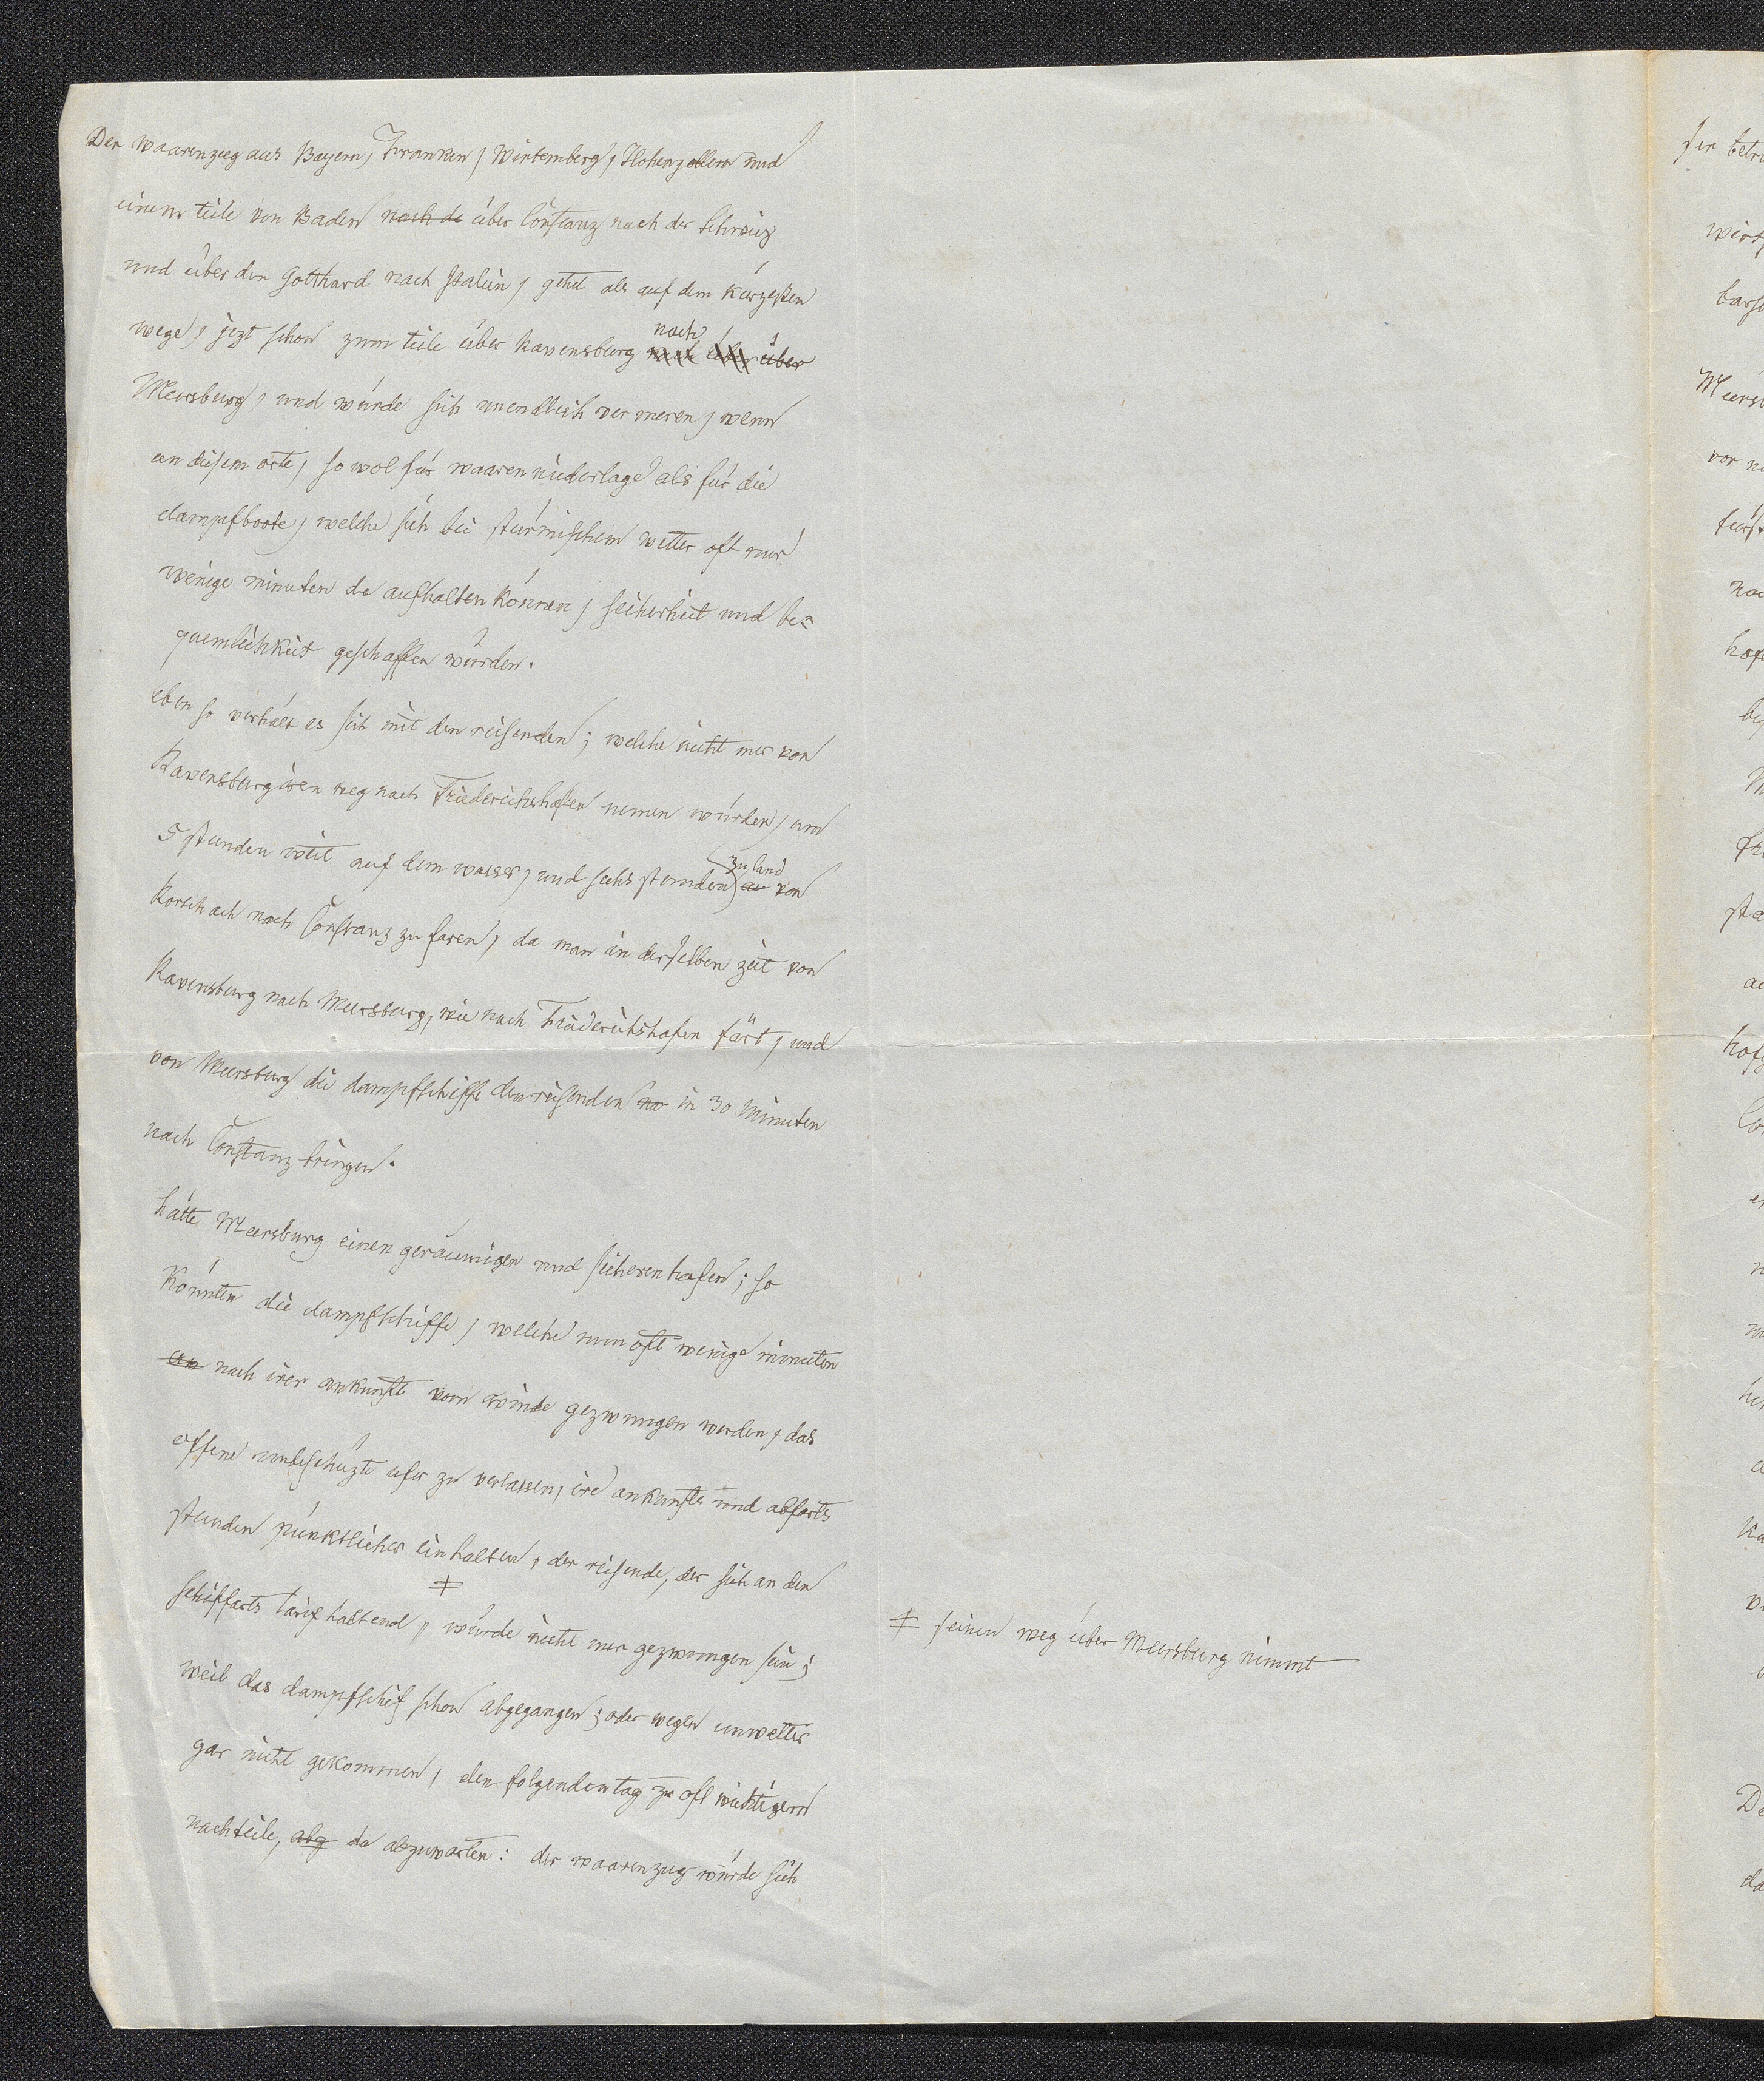 Der waarenzug aus Bayern, Franken, Wirtemberg, Hohenzollern und
einem teile von Baden nach de über Constanz nach der Schweiz
und über den Gotthard nach Italien, gehet als auf dem kürzesten
wege, jezt schon zum teile über Ravensburg nach über
Meersburg, und würde sich unendlich vermeren, wenn
an disem orte, so wol für waarenniederlage als für die
dampfboote, welche sich bei stürmischem wetter oft nur
wenige minuten da aufhalten können, sicherheit und be=
quemlichkeit geschaffen würden.
eben so verhält es sich mit den reisenden; welche nicht mer von
Ravensburg iren weg nach Friederichshafen nemen würden, um
5 stunden weit auf dem wasser, und sechs stunden zu land von
Rorschach nach Constanz zu faren, da man in derselben zeit von
Ravensburg nach Meersburg, wie nach Friederichshafen färt, und
von Meersburg die dampfschiffe den reisenden na in 30 Minuten
nach Constanz bringen.
hätte Meersburg einen geräumigen und sicheren hafen; so
könnten die dampfschiffe, welche nun oft wenige minuten
an nach irer ankunft vom winde gezwungen werden, das
offene unbeschüzte ufer zu verlassen, ire ankunfts und abfarts
stunden pünktlicher einhalten, der reisende, der sich an den
schiffarts tarif haltend, ǂ würde nicht mer gezwungen sein;
weil das dampfschif schon abgegangen; oder wegen unwetter
gar nicht gekommen, den folgenden tag zu oft wichtigem
nachteile, abg da abzuwarten: der waarenzug würde sich
ǂ seinen weg über Meersburg nimmt
der
Meers